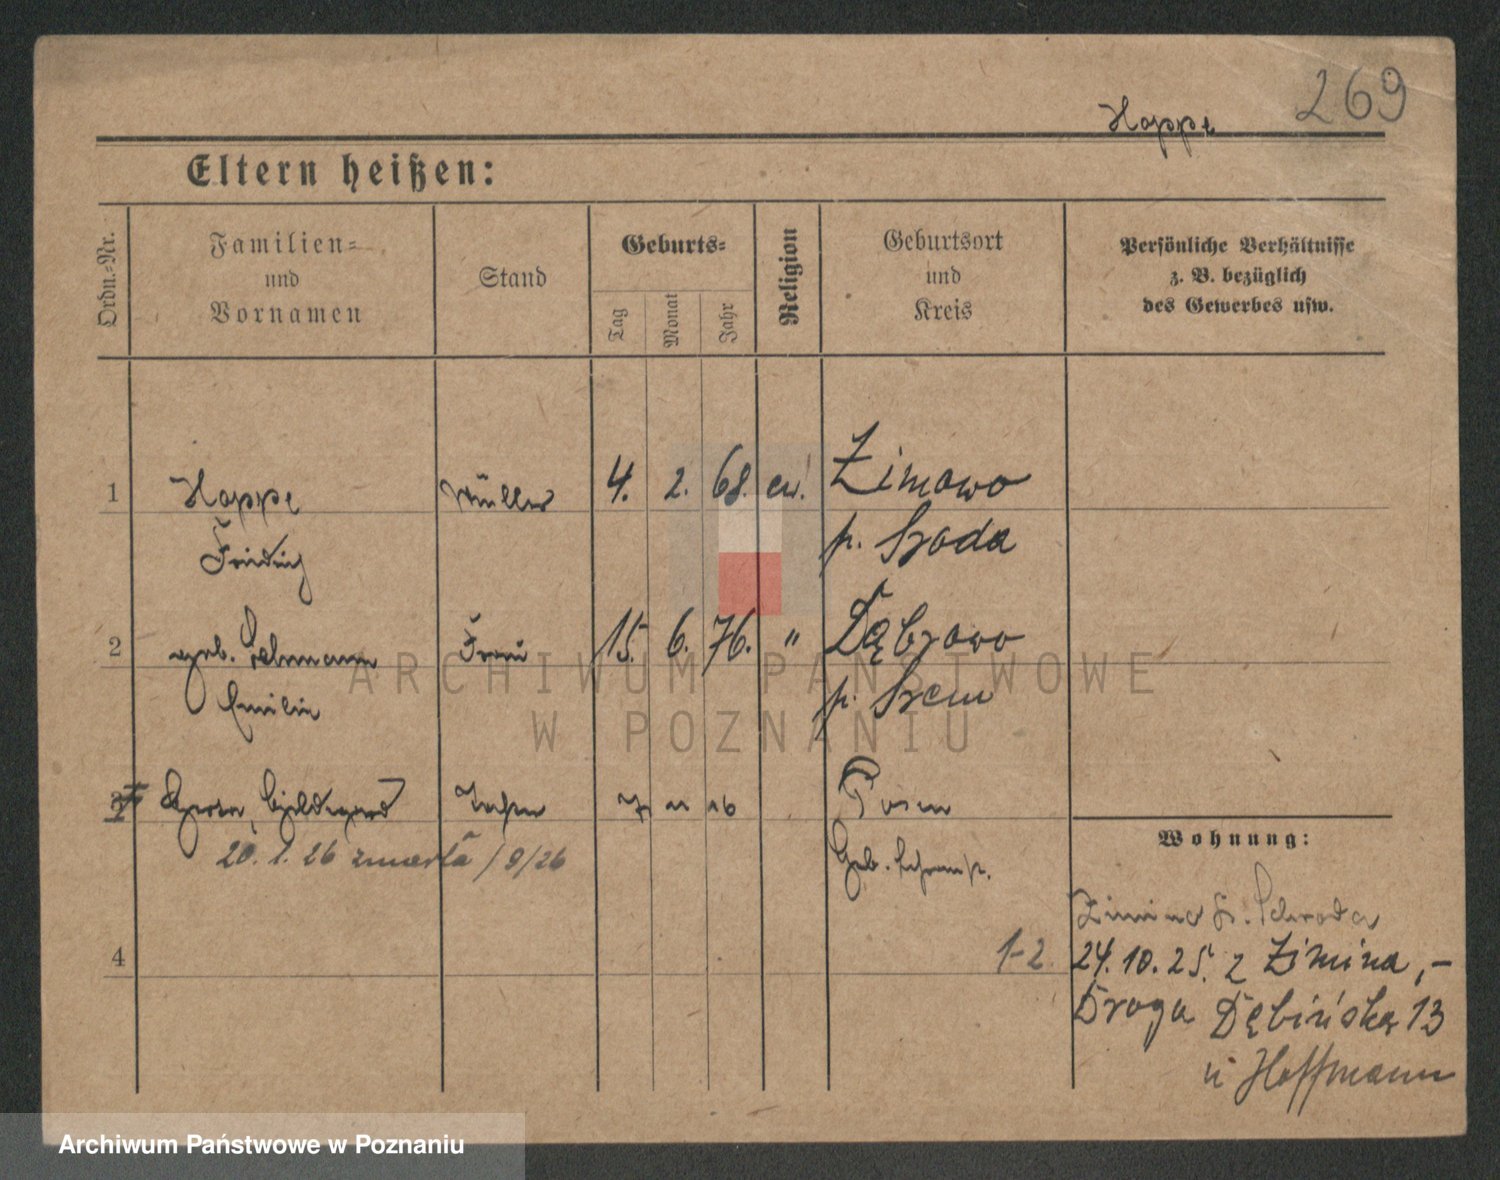 269
Hoppe
Eltern heißen:
Ordn.-Nr.
Familien-
und
Vornamen
Stand
Geburts-
Tag
Monat
Jahr
Religion
Geburtsort
und
Kreis
Persönliche Verhältnisse
z. B. bezüglich
des Gewerbes usw.
1 Hoppe Müller 4. 2. 68. ew. Zimowo
Friedrich p. Szoda
2 geb. Lehmann Frau 15. 6. 76. " Dąbrowo
Emilie p. Szem
3 Hildegard 7 11 16 Posen
20. 1. 26 zmarła / 9/26
Geb.
Wohnung:
Zimina Kr. Schroda
4
1-2 24.10.25. z Zimina,-
Droga Dębińska 13
u Hoffmann
ARCHIWUM PAŃSTWOWE
W POZNANIU
Archiwum Państwowe w Poznaniu